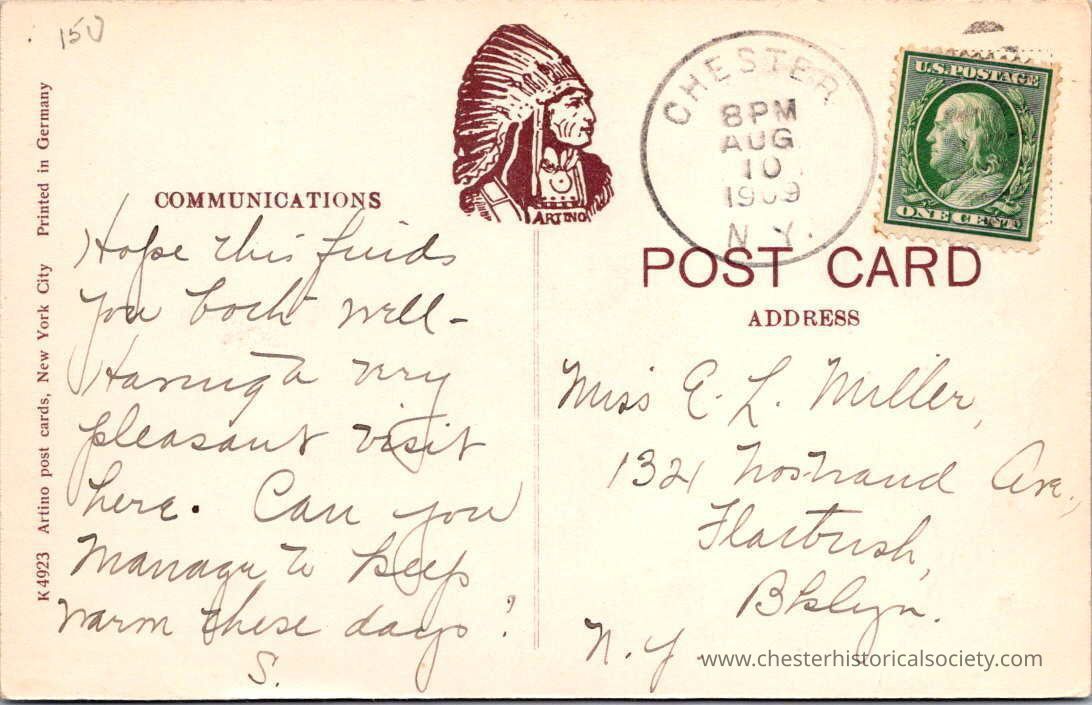 150
K4923 Artino post cards, New York City Printed in Germany
COMMUNICATIONS
Hope this finds
you both well -
Having a very
pleasant visit
here. Can you
manage to keep
warm these days?
S.
ARTINO
CHESTER
8 PM
AUG
10
1909
N.Y.
U.S. POSTAGE
ONE CENT
POST CARD
ADDRESS
Miss E. L. Miller,
1321 Nostrand Ave.,
Flatbush,
Bklyn.
N.Y.
www.chesterhistoricalsociety.com